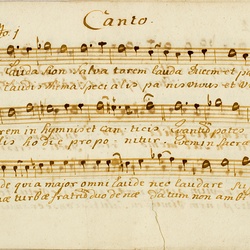 Canto.
No. 1
Lauda Sion Salva torem lauda ducem et p
Laudis thema specialis pa nis vivus et vi
rem in hymnis et can ticis Quantū potes
lis ho di e propo nitur. Quem in sacrae
de qui a major omni laude nec laudare su
næ turbæ fratrū duo denæ Datum non amb